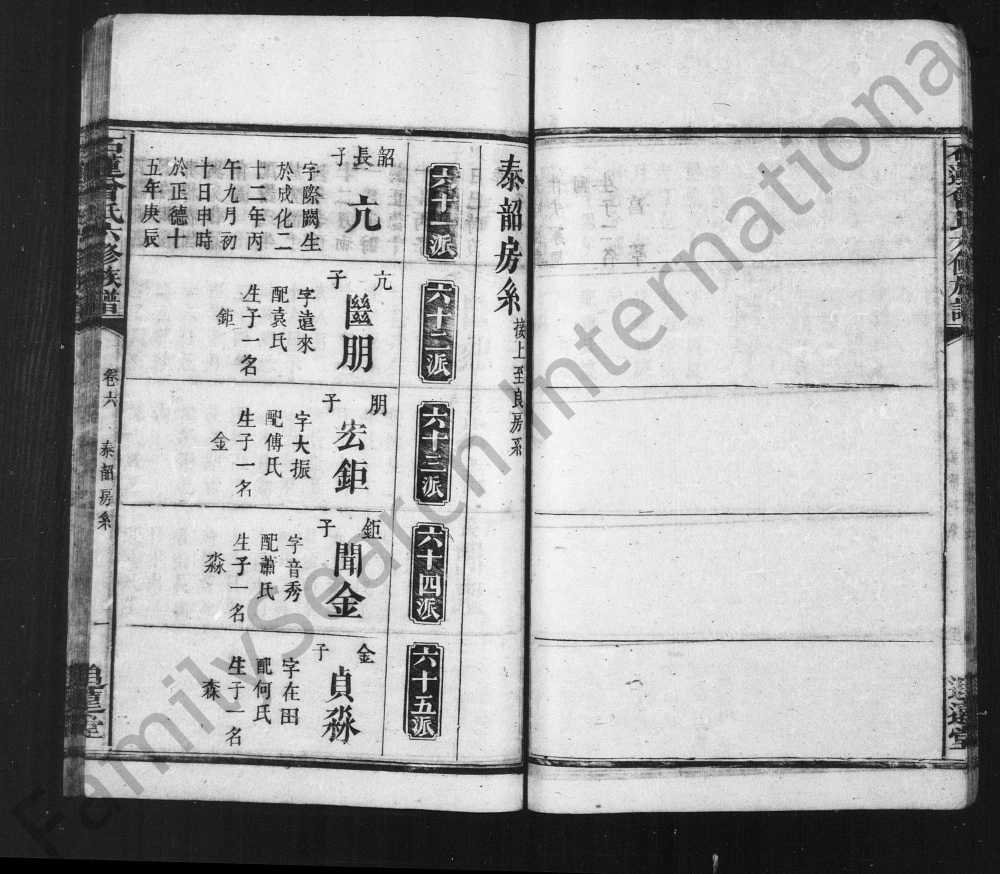 泰韶房系 接上至良房系
六十一派
六十二派
六十三派
六十四派
六十五派
韶長子
亢
字際闕生
於成化二
十二年丙
午九月初
十日申時
於正德十
五年庚辰
亢子
朋
字遠來
配袁氏
生子一名
鉅
朋子
宏鉅
字大振
配傅氏
生子一名
金
鉅子
聞金
字音秀
配蕭氏
生子一名
淼
金子
貞淼
字在田
配何氏
生子一名
森
石蓮曾氏六修族譜
卷六
泰韶房系
一
追蓮堂
FamilySearch International